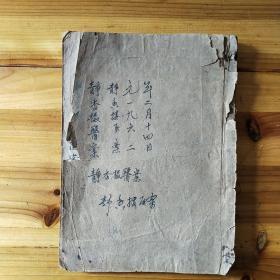 静香楼醫案
静香楼医案
元一九六二
年二月十四日
静香楼醫案
静香楼